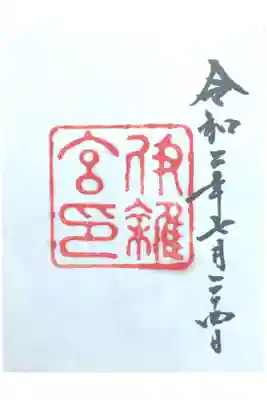 令和二年七月二十四日
伊雜
宮印